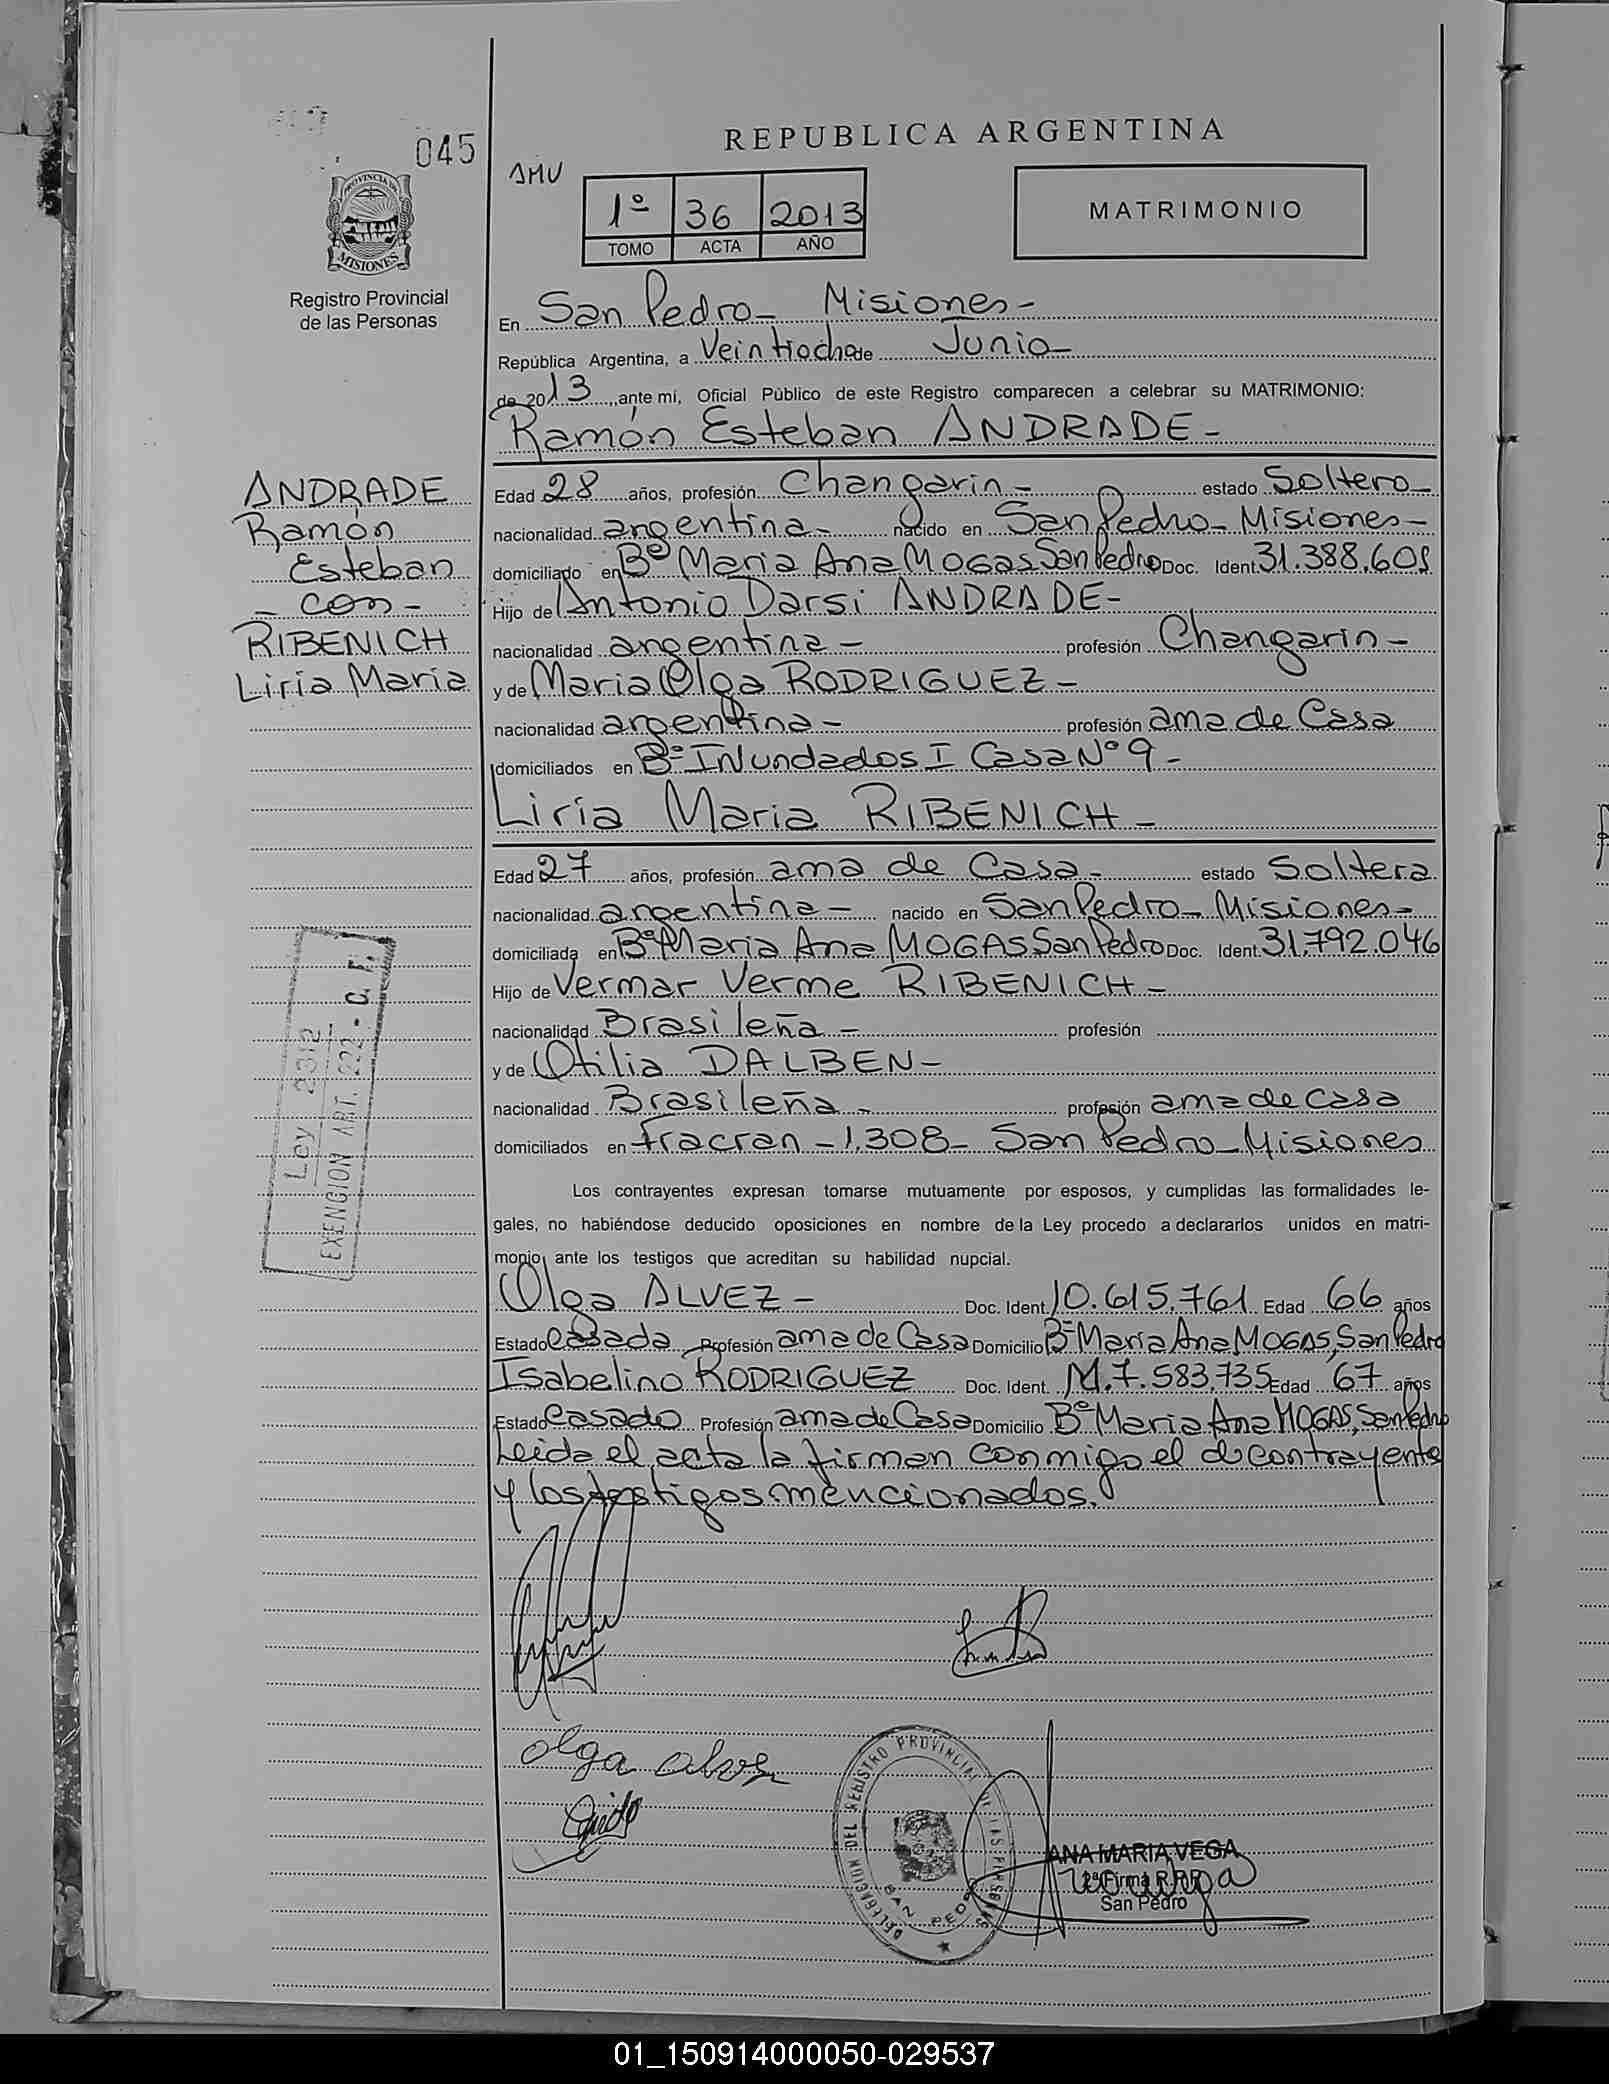 045
REPUBLICA ARGENTINA
AMV
1º 36 2013
TOMO ACTA AÑO
MATRIMONIO
PROVINCIA DE
MISIONES
Registro Provincial
de las Personas
En San Pedro - Misiones -
República Argentina, a Veintiocho de Junio -
de 2013, ante mí, Oficial Público de este Registro comparecen a celebrar su MATRIMONIO:
Ramón Esteban ANDRADE -
ANDRADE
Ramón
Esteban
- con -
RIBENICH
Liria Maria
Edad 28 años, profesión Changarin - estado Soltero -
nacionalidad argentina - nacido en San Pedro - Misiones -
domiciliado en Bº Maria Ana MOGAS San Pedro Doc. Ident. 31.388.605
Hijo de Antonio Darsi ANDRADE -
nacionalidad argentina - profesión Changarin -
y de Maria Olga RODRIGUEZ -
nacionalidad argentina - profesión ama de Casa
domiciliados en Bº INundados I Casa Nº 9 -
Liria Maria RIBENICH -
Edad 27 años, profesión ama de Casa - estado Soltera
nacionalidad argentina - nacido en San Pedro - Misiones -
domiciliada en Bº Maria Ana MOGAS San Pedro Doc. Ident. 31.792.046
Hijo de Vermar Verme RIBENICH -
nacionalidad Brasileña - profesión
y de Otilia DALBEN -
nacionalidad Brasileña - profesión ama de casa
domiciliados en Fracran - 1.308 - San Pedro - Misiones
Ley 2312
EXENCION ART. 222 - C. F.
Los contrayentes expresan tomarse mutuamente por esposos, y cumplidas las formalidades le-
gales, no habiéndose deducido oposiciones en nombre de la Ley procedo a declararlos unidos en matri-
monio, ante los testigos que acreditan su habilidad nupcial.
Olga ALVEZ - Doc. Ident. 10.615.761 Edad 66 años
Estado Casada Profesión ama de Casa Domicilio Bº Maria Ana MOGAS, San Pedro
Isabelino RODRIGUEZ Doc. Ident. M.7.583.735 Edad 67 años
Estado Casado Profesión ama de Casa Domicilio Bº Maria Ana MOGAS, San Pedro
Leida el acta la firman conmigo el contrayente
y los testigos mencionados.
olga
DELEGACION DEL REGISTRO PROVINCIAL DE LAS PERSONAS
SAN PEDRO
ANA MARIA VEGA
2ª Firma R.P.P.
San Pedro
01_150914000050-029537